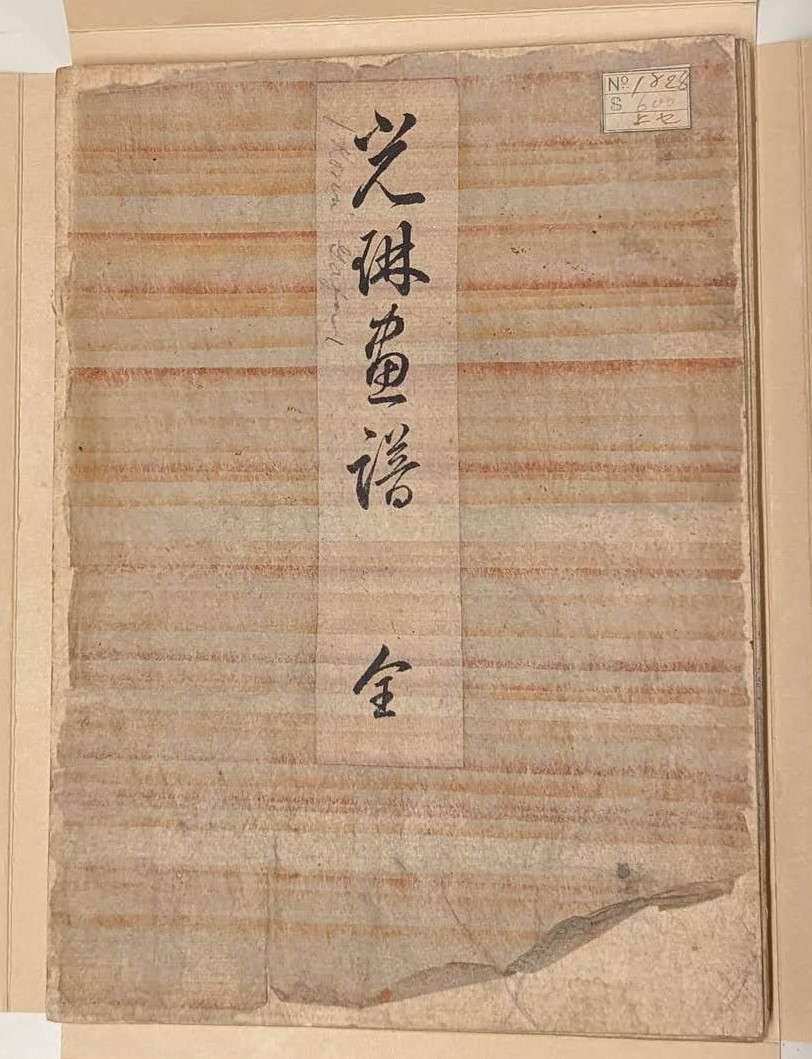 光琳画譜 全
Korin Gafu
No 1828
$ 600
よセ